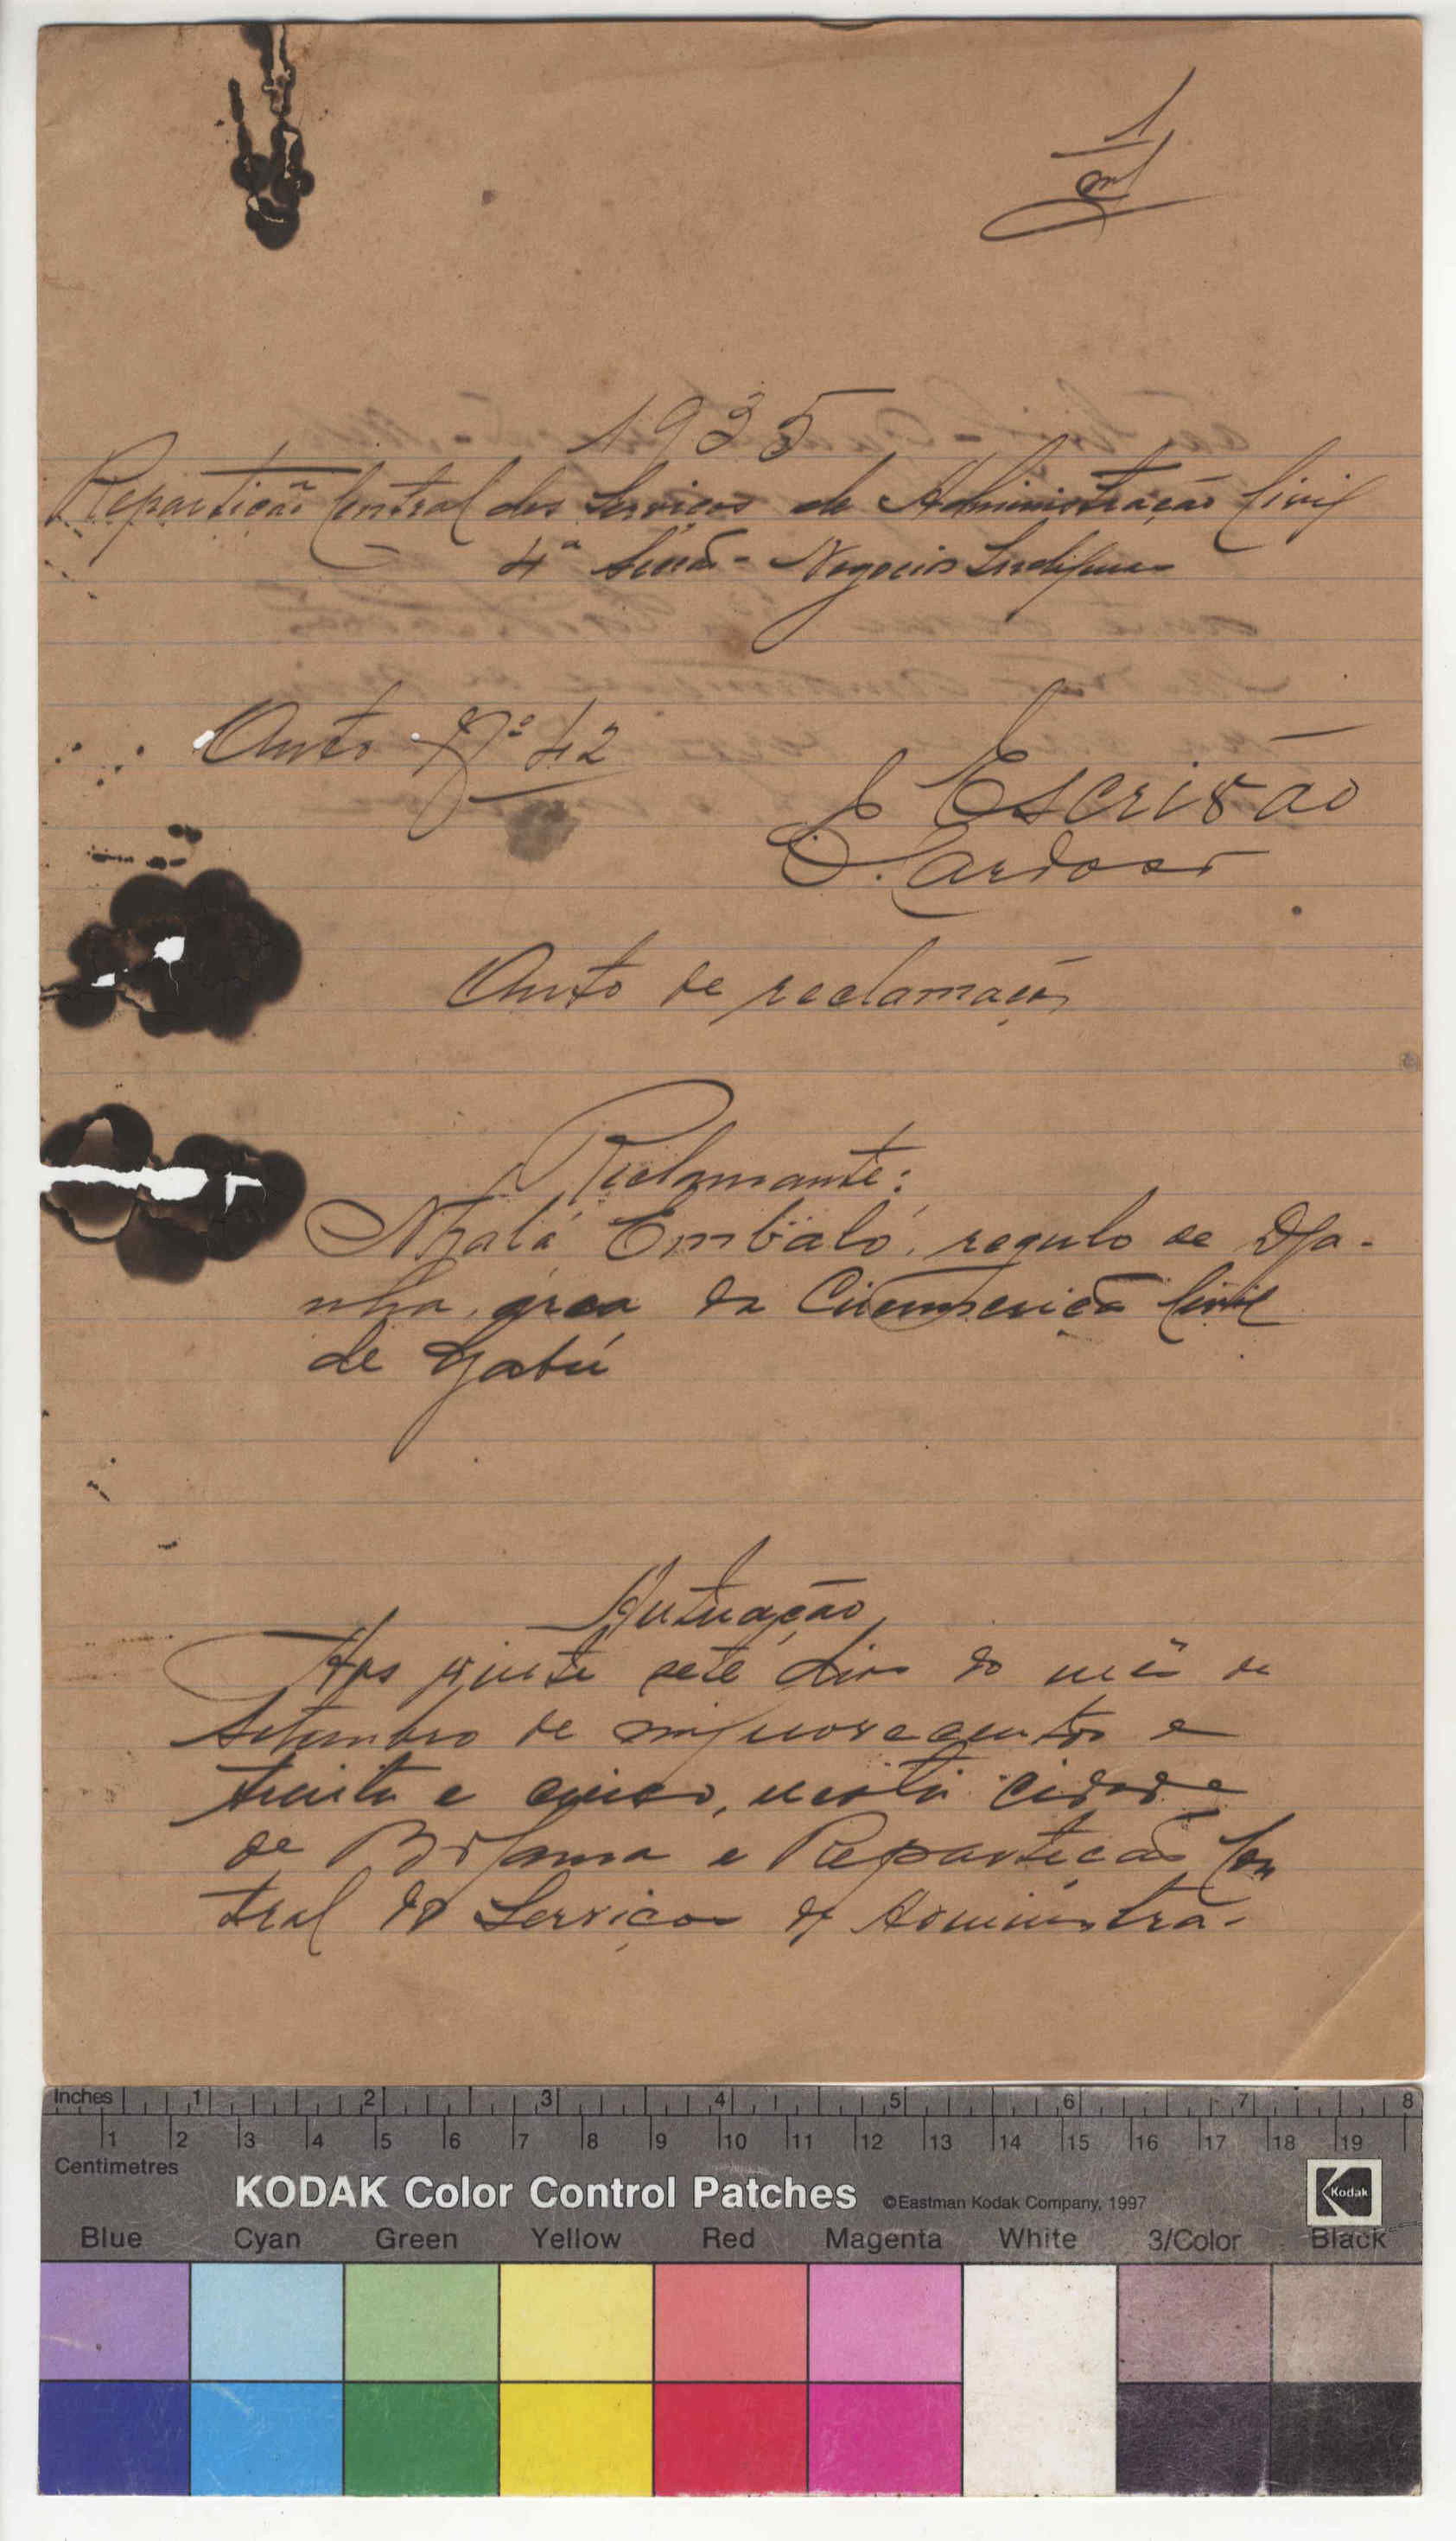 1
1935
Repartição Central dos Serviços de Administração Civil
4ª Secção - Negocios Indígenas
Auto Nº 42
O Escrivão
Cardoso
Auto de reclamação
Reclamante:
Embaló, regulo de Dja-
nha, area da Circunscrição Civil
de Gabú
Autuação
Aos vinte sete dias do mês de
Setembro de mil novecentos e
trinta e cinco, nesta cidade
de Bolama e Repartição Cen
tral dos Serviços de Administra-
Inches 1 2 3 4 5 6 7 8
1 2 3 4 5 6 7 8 9 10 11 12 13 14 15 16 17 18 19
Centimetres
KODAK Color Control Patches ©Eastman Kodak Company, 1997 Kodak
Blue Cyan Green Yellow Red Magenta White 3/Color Black